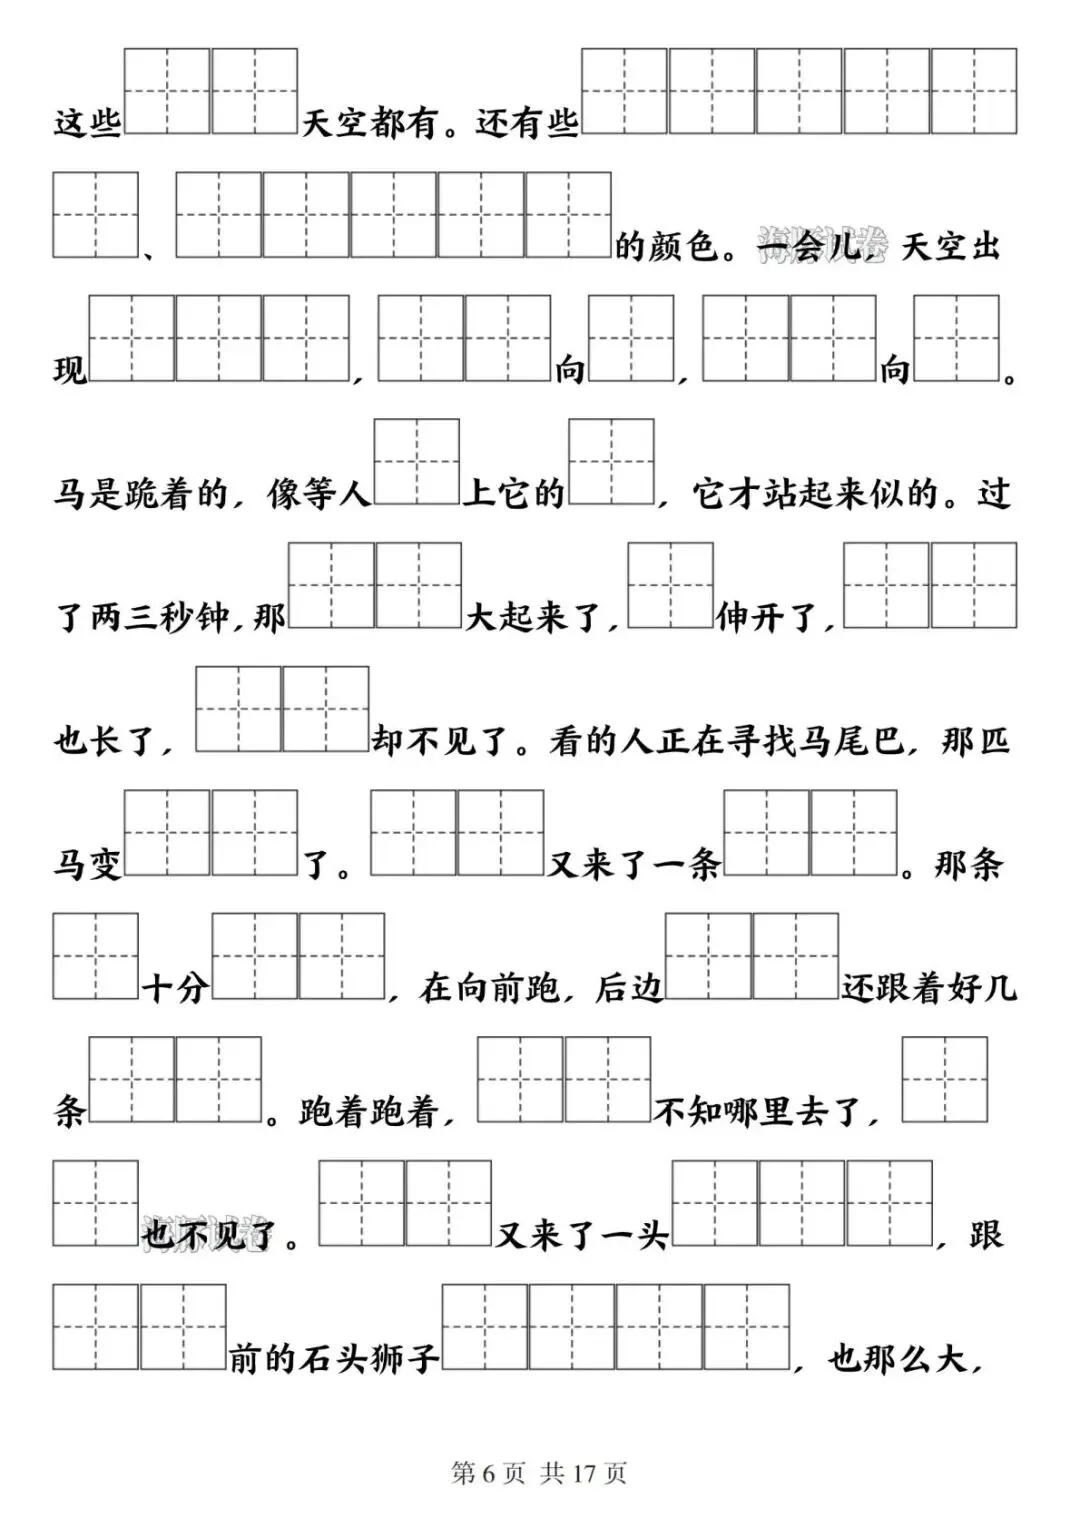 这些天空都有。还有些
、的颜色。一会儿，天空出
现，向，向。
马是跪着的，像等人上它的，它才站起来似的。过
了两三秒钟，那大起来了，伸开了，
也长了，却不见了。看的人正在寻找马尾巴，那匹
马变了。又来了一条。那条
十分，在向前跑，后边还跟着好几
条。跑着跑着，不知哪里去了，
也不见了。又来了一头，跟
前的石头狮子，也那么大，
海豚试卷
海豚试卷
第 6 页 共 17 页